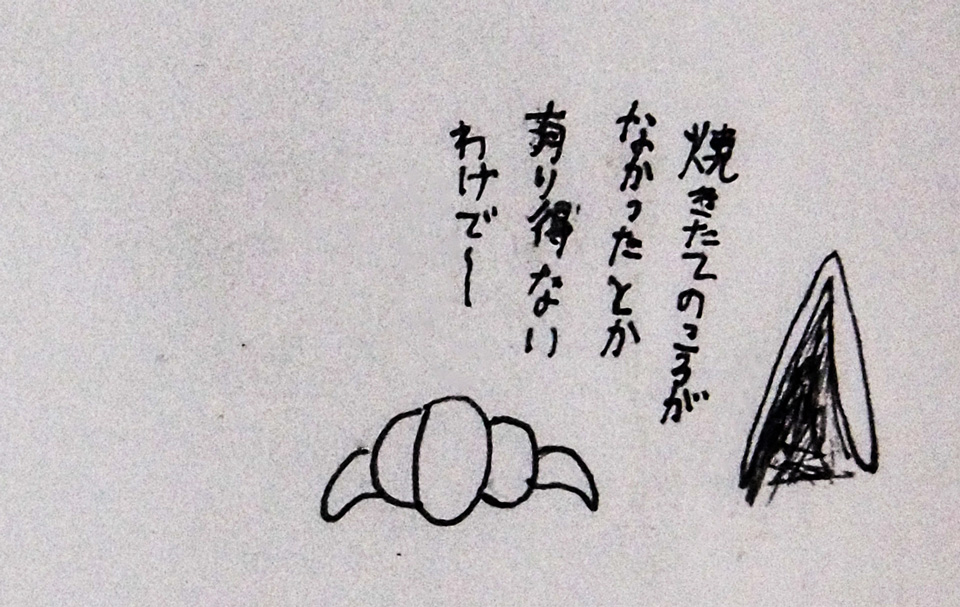 焼きたてのころが
なかったとか
有り得ない
わけで〜